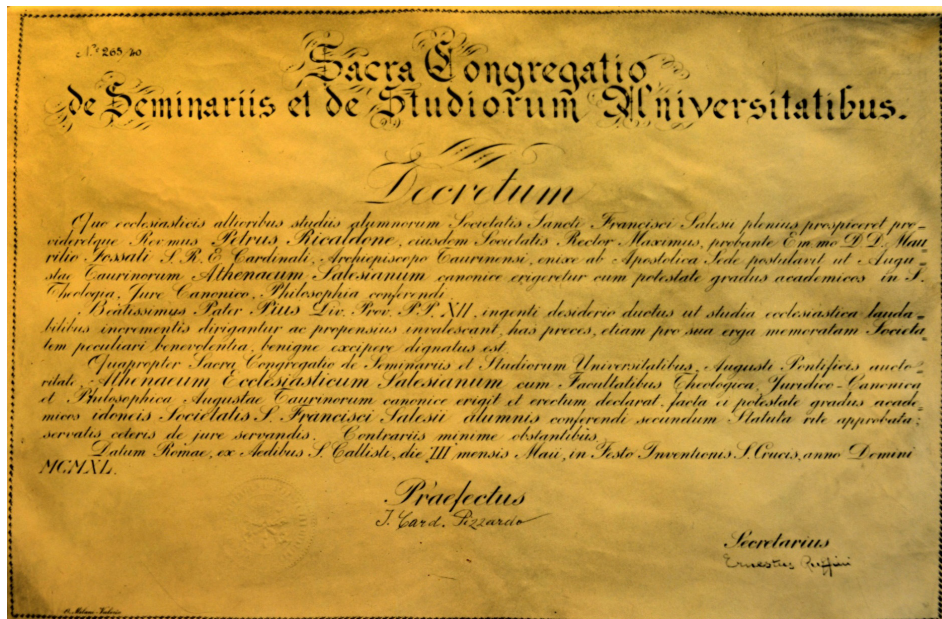 No 265/40
Sacra Congregatio
de Seminariis et de Studiorum Universitatibus.
Decretum
Quo ecclesiasticis altioribus studiis alumnorum Societatis Sancti Francisci Salesii plenius prospiceret pro=
videretque Rev.mus Petrus Ricaldone, eiusdem Societatis Rector Maximus, probante Em.mo D.D. Mau
rilio Fossati S.R.E. Cardinali, Archiepiscopo Taurinensi, enixe ab Apostolica Sede postulavit ut Augu=
stae Taurinorum Athenaeum Salesianum canonice erigeretur cum potestate gradus academicos in S.
Theologia, Jure Canonico, Philosophia conferendi.
Beatissimus Pater Pius Div. Prov. P.P. XII, ingenti desiderio ductus ut studia ecclesiastica lauda=
bilibus incrementis dirigantur ac propensius invalescant, has preces, etiam pro sua erga memoratam Societa
tem peculiari benevolentia, benigne excipere dignatus est.
Quapropter Sacra Congregatio de Seminariis et Studiorum Universitatibus, Augusti Pontificis aucto=
ritate, Athenaeum Ecclesiasticum Salesianum cum Facultatibus Theologica, Juridico-Canonica
et Philosophica Augustae Taurinorum canonice erigit et erectum declarat, facta ei potestate gradus acade=
micos idoneis Societatis S. Francisci Salesii alumnis conferendi secundum Statuta rite approbata;
servatis ceteris de jure servandis. Contrariis minime obstantibus.
Datum Romae, ex Aedibus S. Callisti, die III mensis Maii, in Festo Inventionis S. Crucis, anno Domini
MCMXL.
Praefectus
J. Card. Pizzardo
Secretarius
Ernestus Ruffini